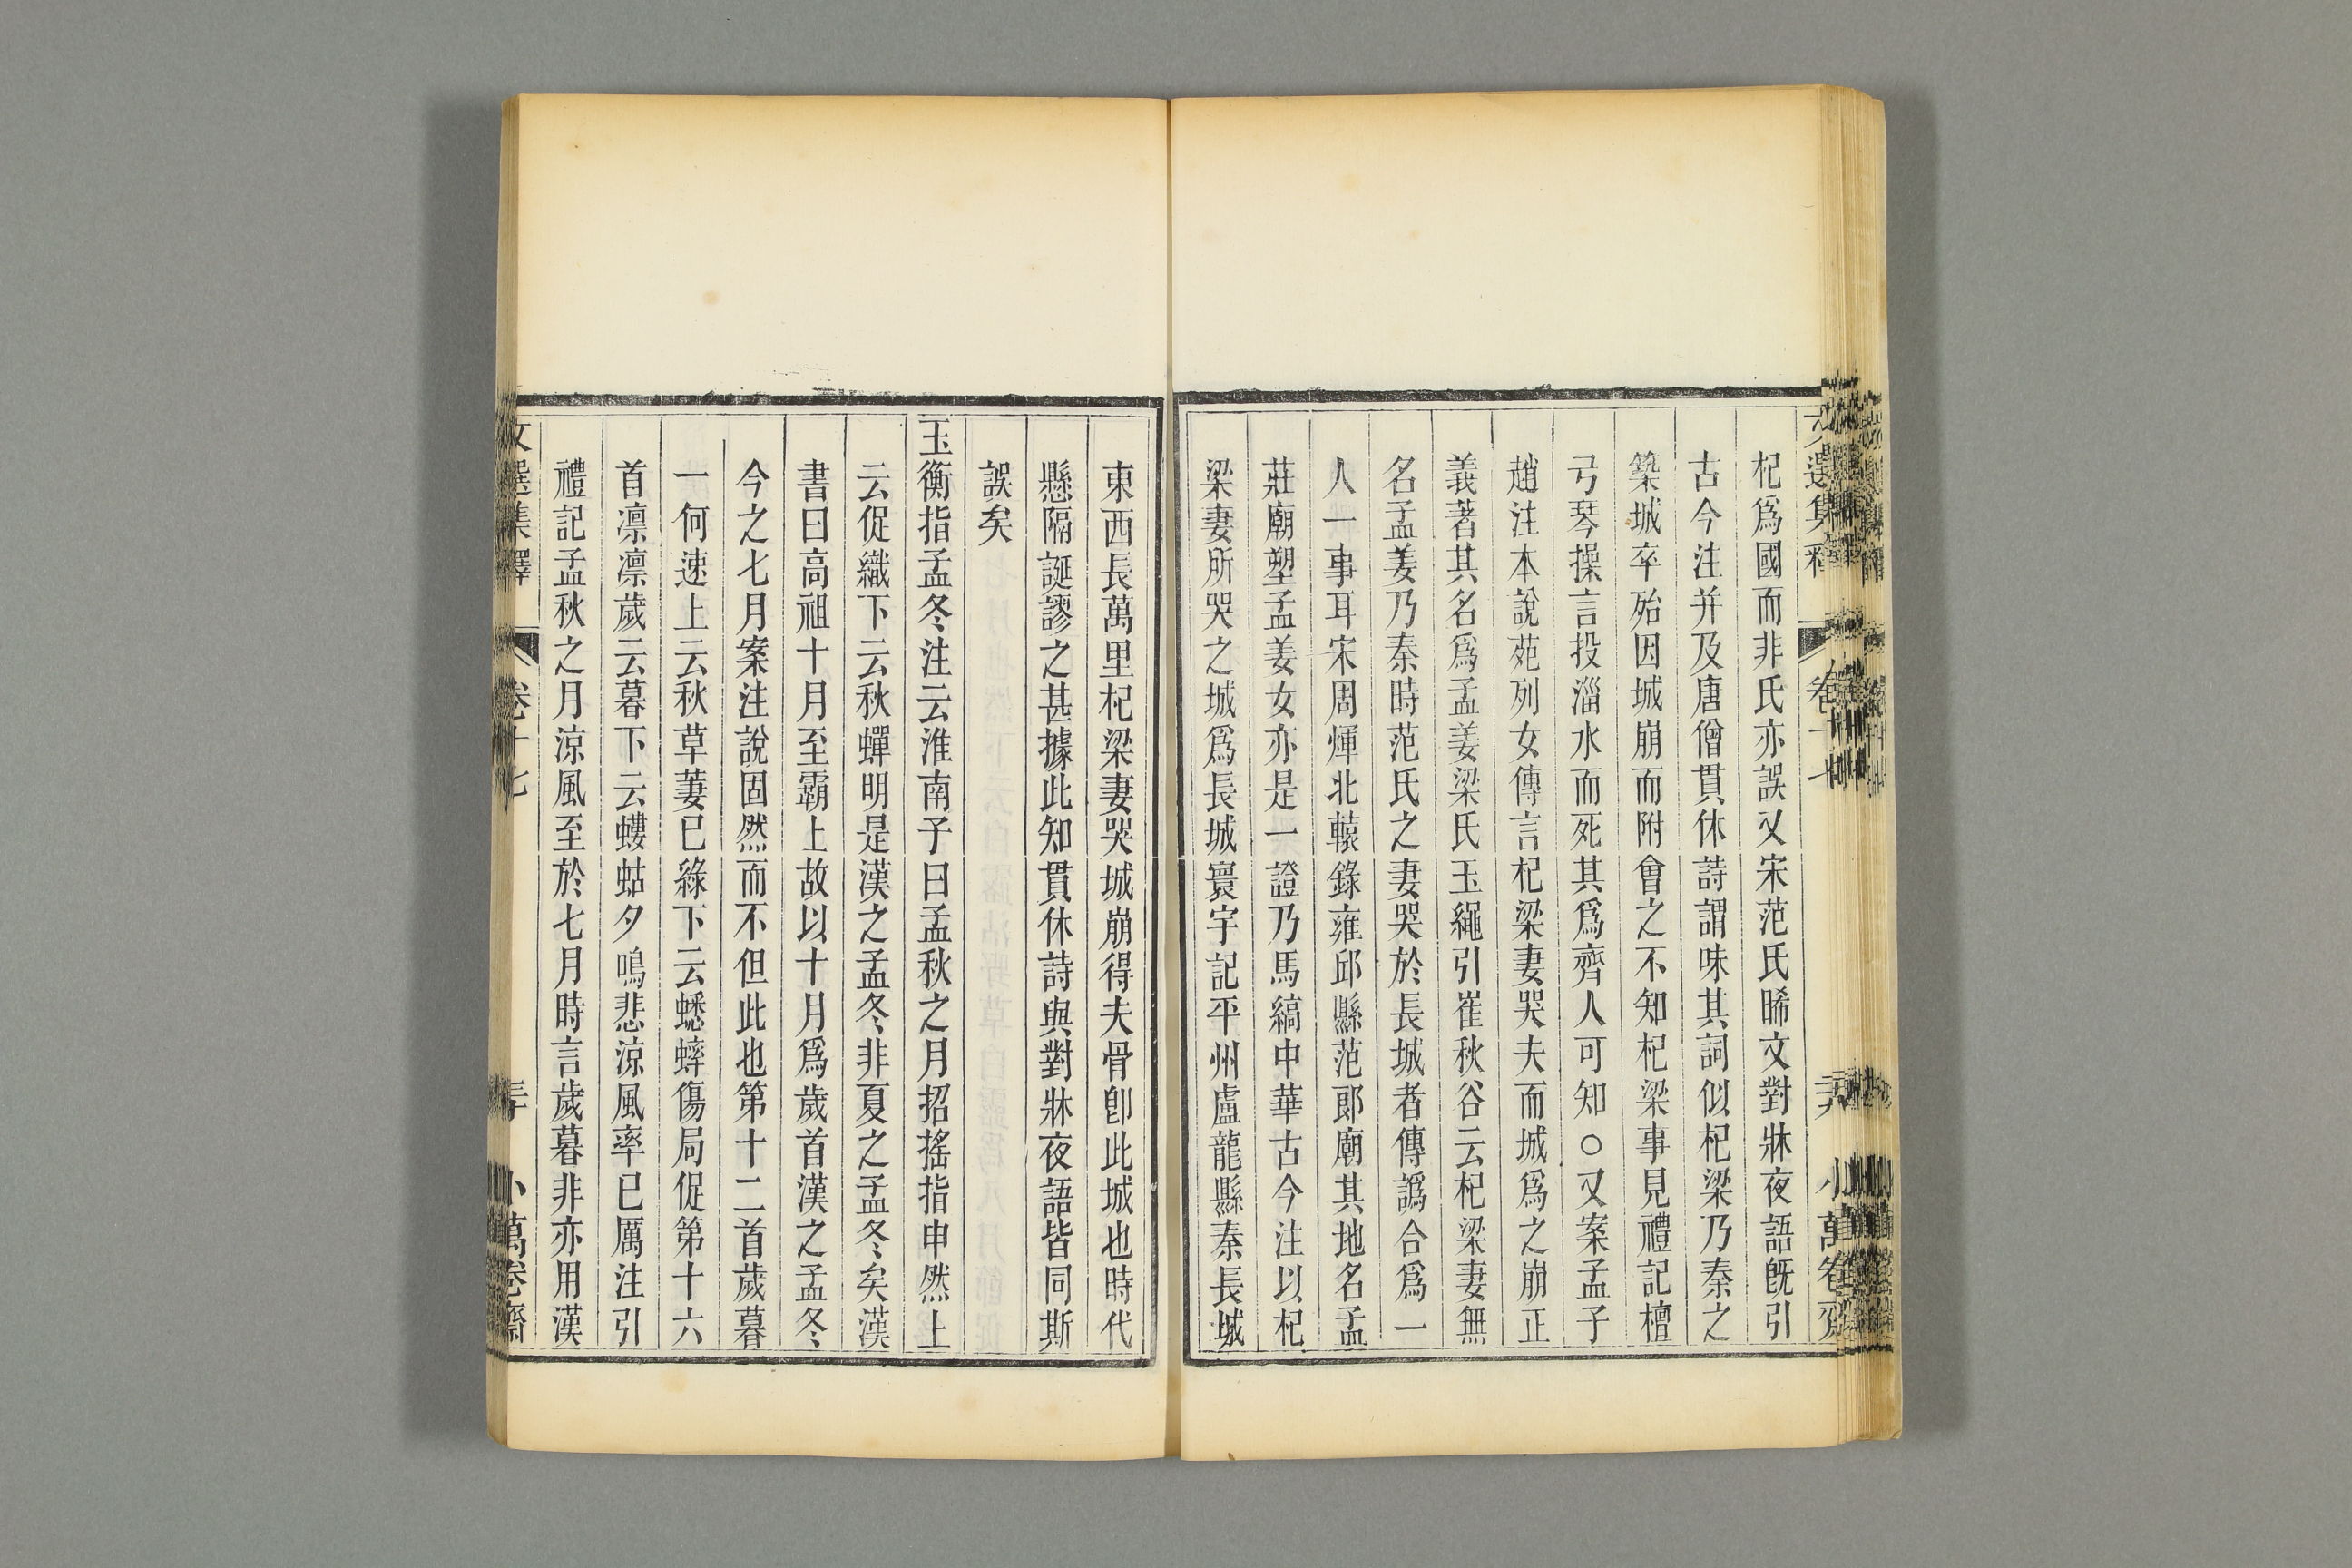 文選集釋 卷十七 小萬卷齋
杞爲國而非氏亦誤又宋范氏晞文對牀夜語旣引
古今注并及唐僧貫休詩謂味其詞似杞梁乃秦之
築城卒殆因城崩而附會之不知杞梁事見禮記檀
弓琴操言投淄水而死其爲齊人可知○又案孟子
趙注本說苑列女傳言杞梁妻哭夫而城爲之崩正
義著其名爲孟姜梁氏玉繩引崔秋谷云杞梁妻無
名孟姜乃秦時范氏之妻哭於長城者傳譌合爲一
人一事耳宋周煇北轅錄雍邱縣范郎廟其地名孟
莊廟塑孟姜女亦是一證乃馬縞中華古今注以杞
梁妻所哭之城爲長城寰宇記平州盧龍縣秦長城
東西長萬里杞梁妻哭城崩得夫骨卽此城也時代
懸隔誕謬之甚據此知貫休詩與對牀夜語皆同斯
誤矣
玉衡指孟冬注云淮南子曰孟秋之月招搖指申然上
云促織下云秋蟬明是漢之孟冬非夏之孟冬矣漢
書曰高祖十月至霸上故以十月爲歲首漢之孟冬
今之七月案注說固然而不但此也第十二首歲暮
一何速上云秋草萋已綠下云蟋蟀傷局促第十六
首凛凛歲云暮下云螻蛄夕鳴悲涼風率已厲注引
禮記孟秋之月涼風至於七月時言歲暮非亦用漢
文選集釋 卷十七 三十 小萬卷齋